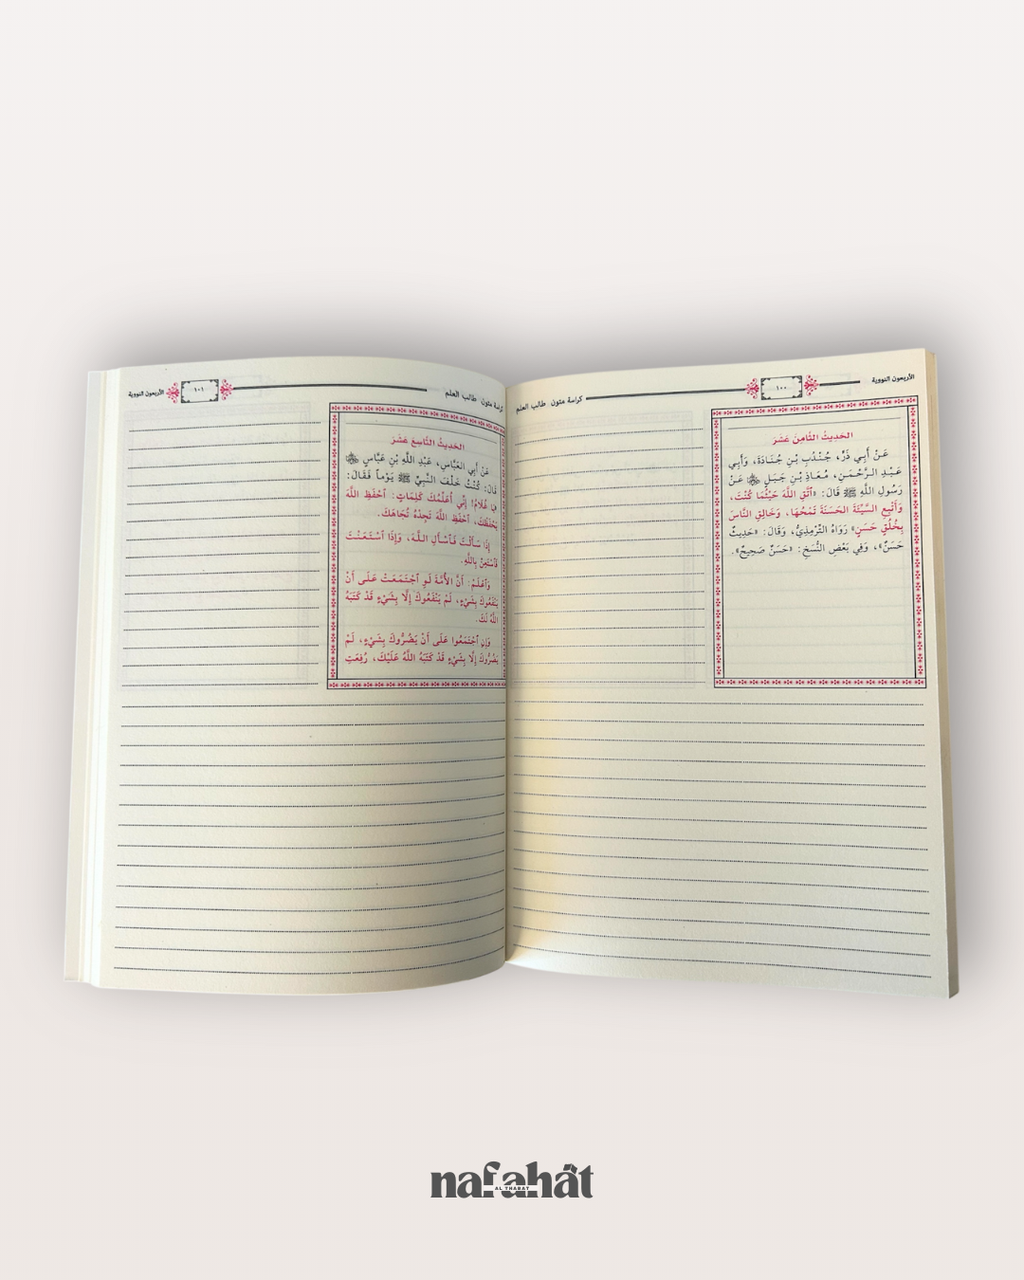 الأربعون النووية
١٠٠
كراسة متون طالب العلم
الحَدِيثُ الثَّامِنَ عَشَرَ
عَنْ أَبِي ذَرٍّ، جُنْدُبِ بْنِ جُنَادَةَ، وَأَبِي
عَبْدِ الرَّحْمَنِ، مُعَاذِ بْنِ جَبَلٍ ﷺ عَنْ
رَسُولِ اللَّهِ ﷺ قَالَ: «اتَّقِ اللَّهَ حَيْثُمَا كُنْتَ،
وَأَتْبِعِ السَّيِّئَةَ الحَسَنَةَ تَمْحُهَا، وَخَالِقِ النَّاسَ
بِخُلُقٍ حَسَنٍ» رَوَاهُ التِّرْمِذِيُّ، وَقَالَ: «حَدِيثٌ
حَسَنٌ»، وَفِي بَعْضِ النُّسَخِ: «حَسَنٌ صَحِيحٌ».
كراسة متون طالب العلم
١٠١
الأربعون النووية
الحَدِيثُ التَّاسِعَ عَشَرَ
عَنْ أَبِي العَبَّاسِ، عَبْدِ اللَّهِ بْنِ عَبَّاسٍ
قَالَ: كُنْتُ خَلْفَ النَّبِيِّ ﷺ يَوْماً فَقَالَ:
يَا غُلَامُ! إِنِّي أُعَلِّمُكَ كَلِمَاتٍ: احْفَظِ اللَّهَ
يَحْفَظْكَ، احْفَظِ اللَّهَ تَجِدْهُ تُجَاهَكَ.
إِذَا سَأَلْتَ فَاسْأَلِ اللَّهَ، وَإِذَا اسْتَعَنْتَ
فَاسْتَعِنْ بِاللَّهِ.
وَاعْلَمْ: أَنَّ الأُمَّةَ لَوِ اجْتَمَعَتْ عَلَى أَنْ
يَنْفَعُوكَ بِشَيْءٍ، لَمْ يَنْفَعُوكَ إِلَّا بِشَيْءٍ قَدْ كَتَبَهُ
اللَّهُ لَكَ.
وَلَوِ اجْتَمَعُوا عَلَى أَنْ يَضُرُّوكَ بِشَيْءٍ، لَمْ
يَضُرُّوكَ إِلَّا بِشَيْءٍ قَدْ كَتَبَهُ اللَّهُ عَلَيْكَ، رُفِعَتِ
nafahât
AL THABAT